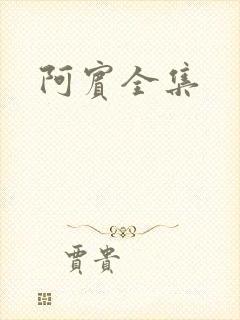 阿賓全集
賈貴